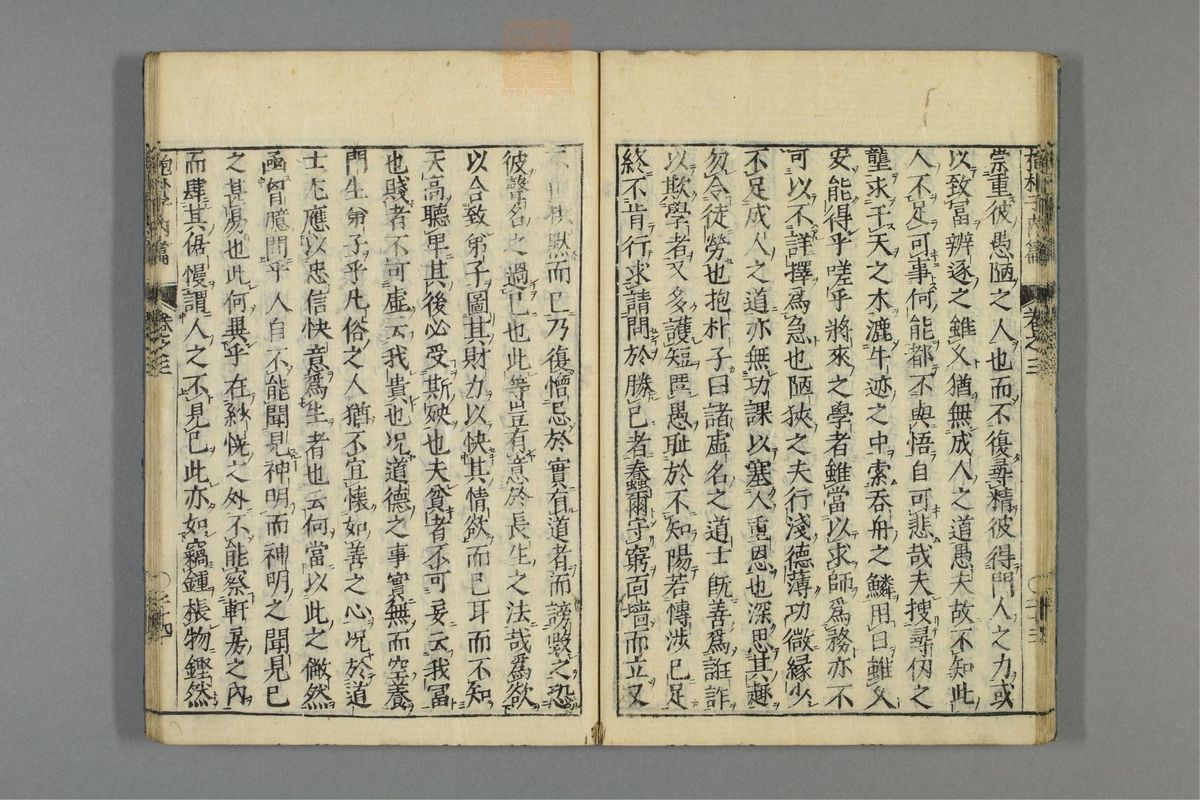 抱朴子內篇 卷之三
崇重彼愚陋之人也而不復尋精彼得門人之力或
以致冨辨逐之雖久猶無成人之道愚夫故不知此
人不足可事何能都不與悟自可悲哉夫搜尋仭之
壟求干天之木漉牛迹之中索吞舟之鱗用日雖久
安能得乎嗟乎將來之學者雖當以求師爲務亦不
可以不詳擇爲急也陋狹之夫行淺德薄功微緣少
不足成人之道亦無功課以塞人重恩也深思其趣
勿令徒勞也抱朴子曰諸虛名之道士旣善爲誑詐
以欺學者又多護短匿愚耻於不知陽若愽涉已足
終不肯行求請問於勝已者蠢爾守窮靣墻而立又
不但拱默而已乃復憎忌於實有道者而謗毀之恐
彼聲名之過已也此等豈有意於長生之法哉爲欲
以合致弟子圖其財力以快其情欲而已耳而不知
天高聽卑其後必受斯殃也夫貧者不可妄云我冨
也賤者不可虛云我貴也况道德之事實無而空養
門生弟子乎凡俗之人猶不宜懷妬善之心况於道
士尤應以忠信快意爲生者也云何當以此之儆然
函胷臆間乎人自不能聞見神明而神明之聞見已
之甚易也此何異乎在紗幌之外不能察軒房之內
而肆其倨慢謂人之不見已此亦如竊鍾棖物鏗然
抱朴子內篇 卷之三 二十四